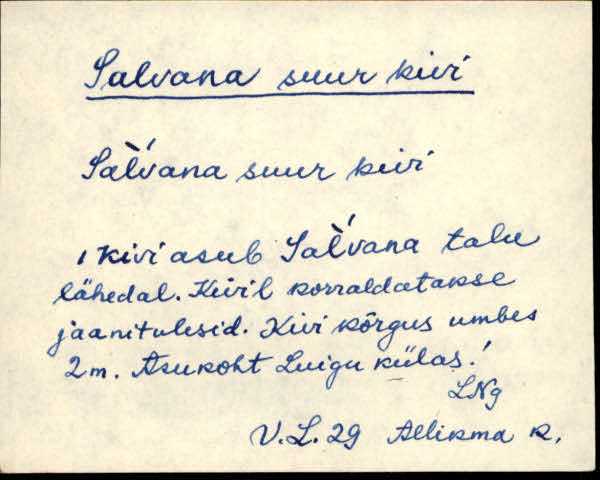 Salvana suur kivi
Sal'vana suur kivi
Kivi asub Sal'vana talu
lähedal. Kivil korraldatakse
jaanitulesid. Kivi kõrgus umbes
2m. Asukoht Luigu külas.
LNg
V.L. 29 Allikma k.